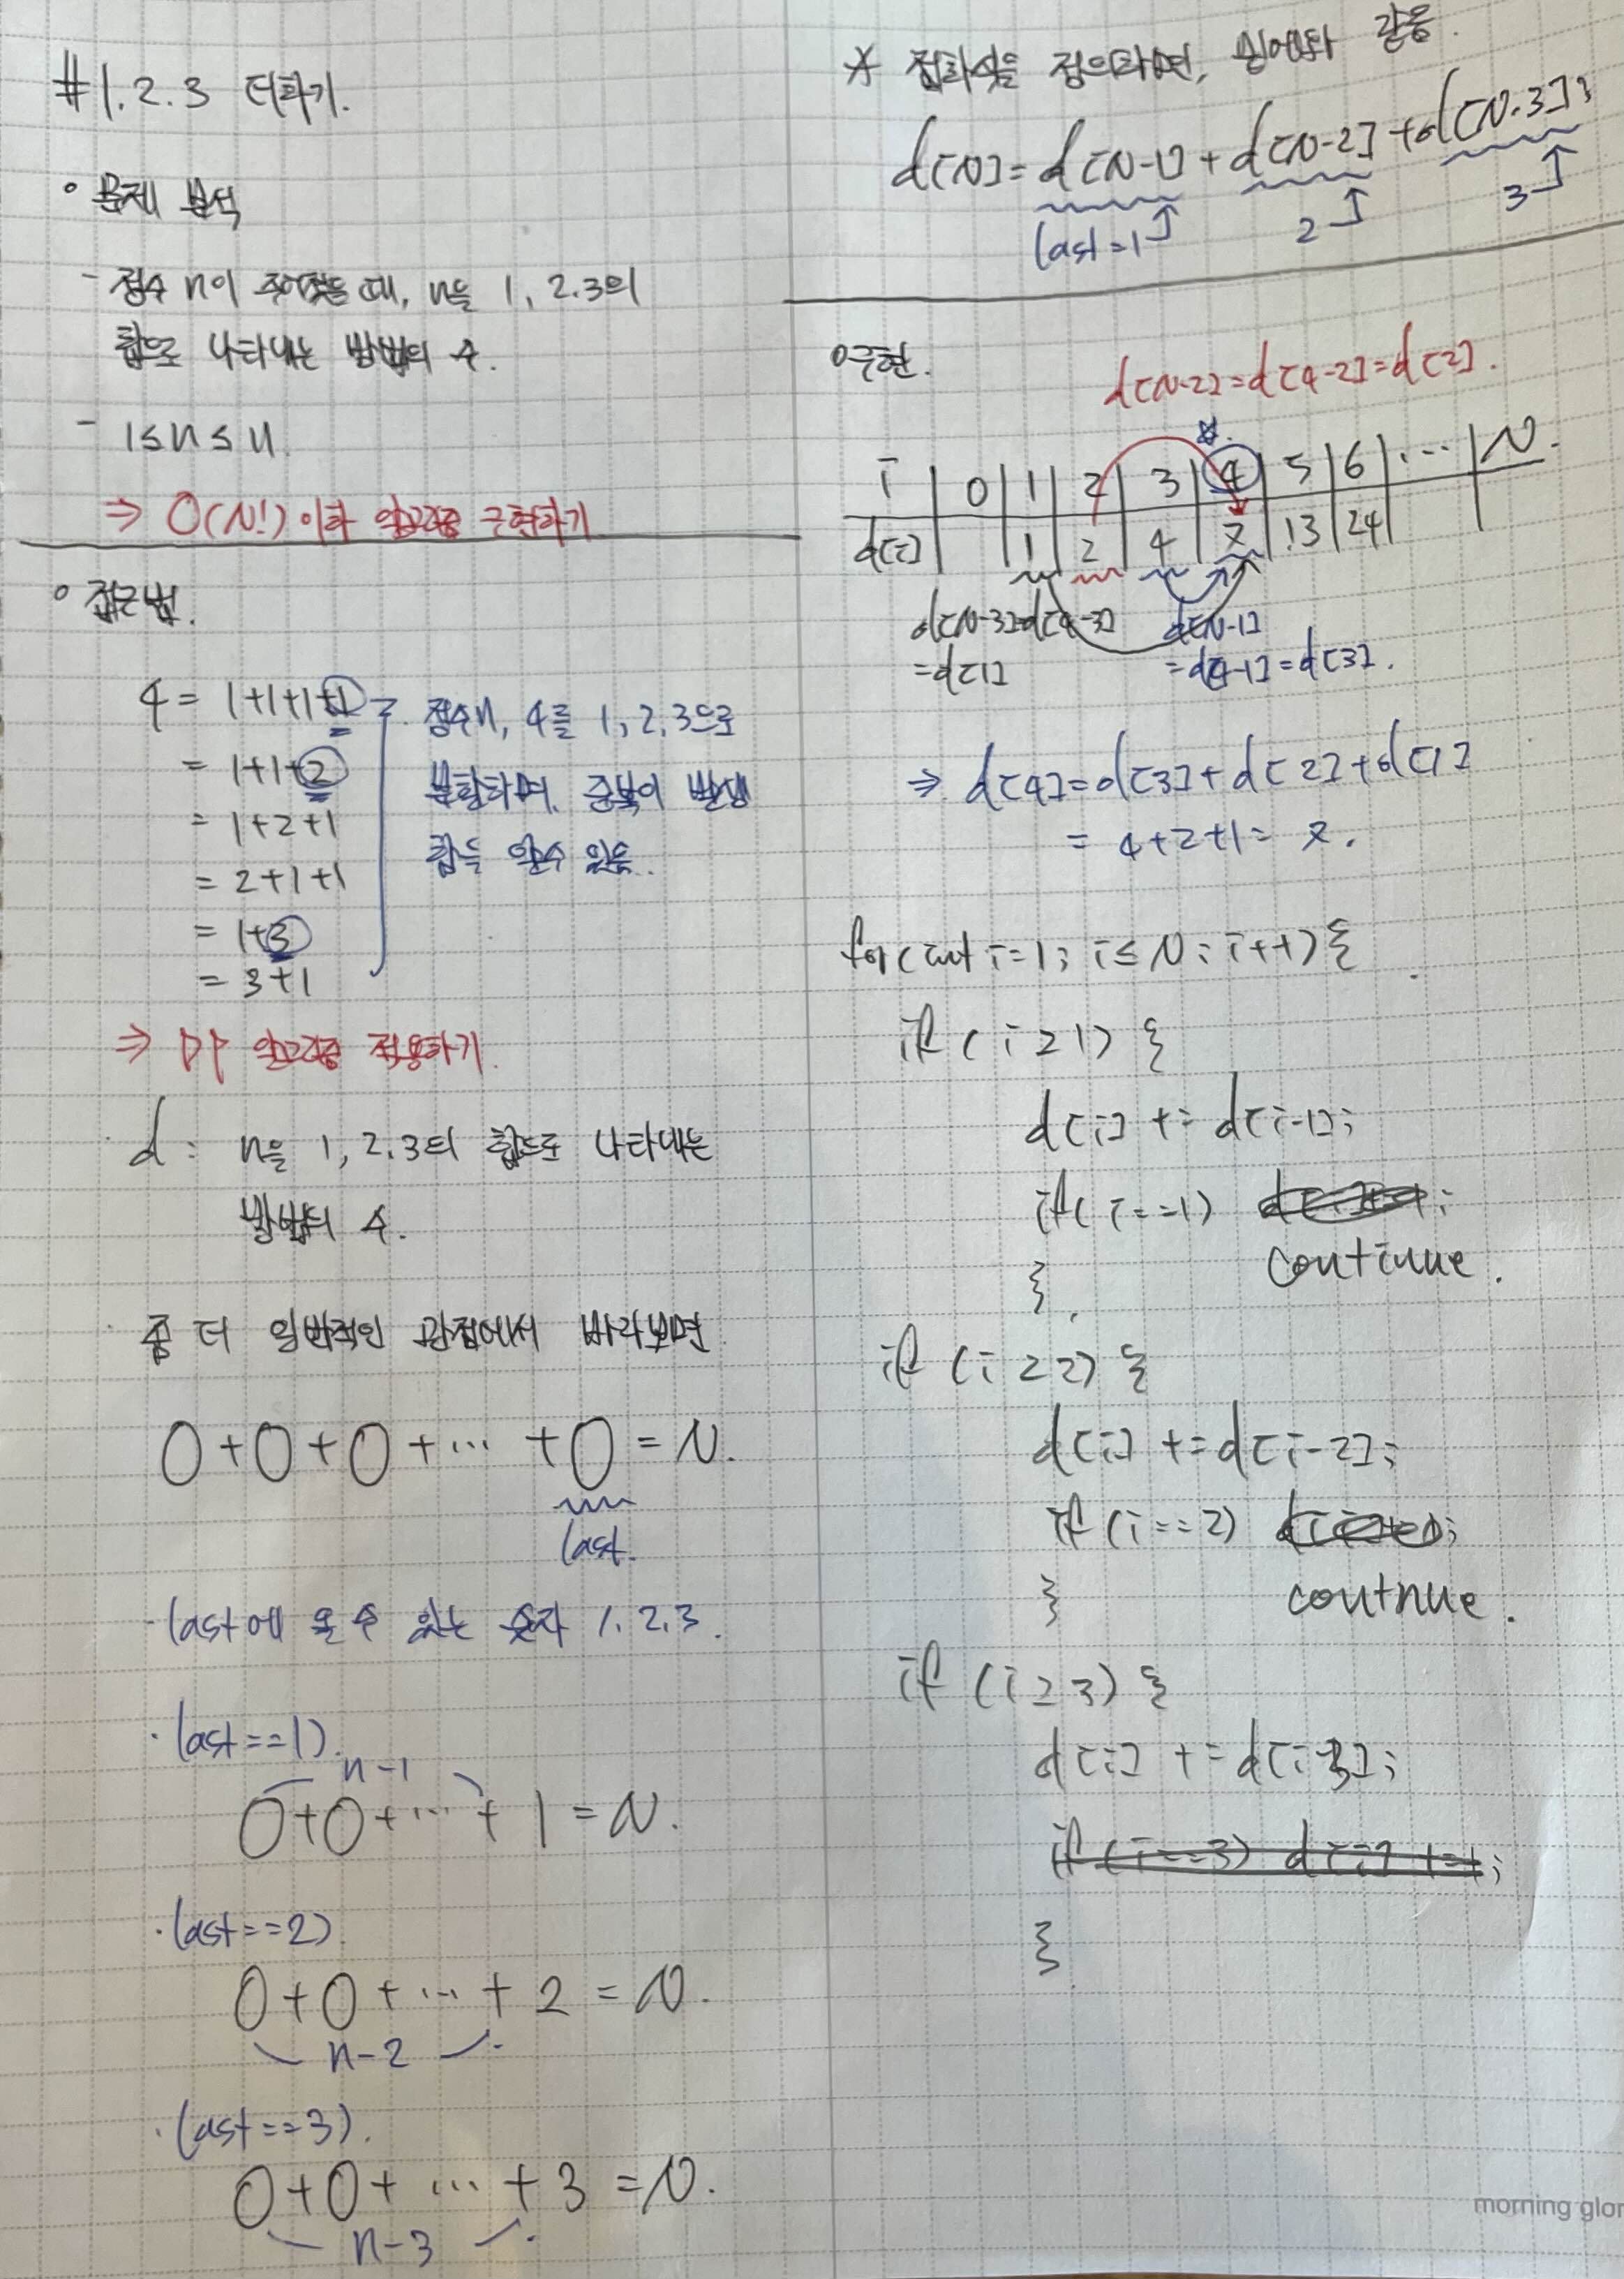 #1.2.3 더하기.
° 문제 분석
- 정수 n이 주어졌을 때, n을 1, 2.3의
합으로 나타내는 방법의 수.
- 1≤n≤11
⇒ O(N!) 이하 알고리즘 구현하기
° 접근법.
4 = 1+1+1+1
= 1+1+2
= 1+2+1
= 2+1+1
= 1+3
= 3+1
정수n, 4를 1, 2, 3으로
분할하며, 중복이 발생
함을 알수 있음.
⇒ DP 알고리즘 적용하기.
d : n을 1, 2.3의 합으로 나타내는
방법의 수.
좀 더 일반적인 관점에서 바라보면
O+O+O+ ... +O = N.
last.
- last에 올 수 있는 숫자 1, 2, 3.
· last==1).
n-1
O+O+ ... + 1 = N.
· last==2)
O+O+ ... + 2 = N.
n-2
· last==3).
O+O+ ... + 3 = N.
n-3
* 점화식을 정의하면, 밑에와 같음.
d[N] = d[N-1] + d[N-2] + d[N-3];
last=1 2 3
°구현.
d[N-2] = d[4-2] = d[2].
i | 0 | 1 | 2 | 3 | 4 | 5 | 6 | ... | N.
d[i] | | 1 | 2 | 4 | 7 | 13 | 24 |
d[N-3]=d[4-3]
=d[1]
d[N-1]
=d[4-1]=d[3].
⇒ d[4] = d[3] + d[2] + d[1]
= 4+2+1 = 7.
for(int i=1; i≤N; i++){
if (i≥1) {
d[i] += d[i-1];
if(i==1)
continue.
}
if (i≥2) {
d[i] += d[i-2];
if (i==2)
contnue.
}
if (i≥3) {
d[i] += d[i-3];
if (i==3) d[i] +=1;
}
morning glor